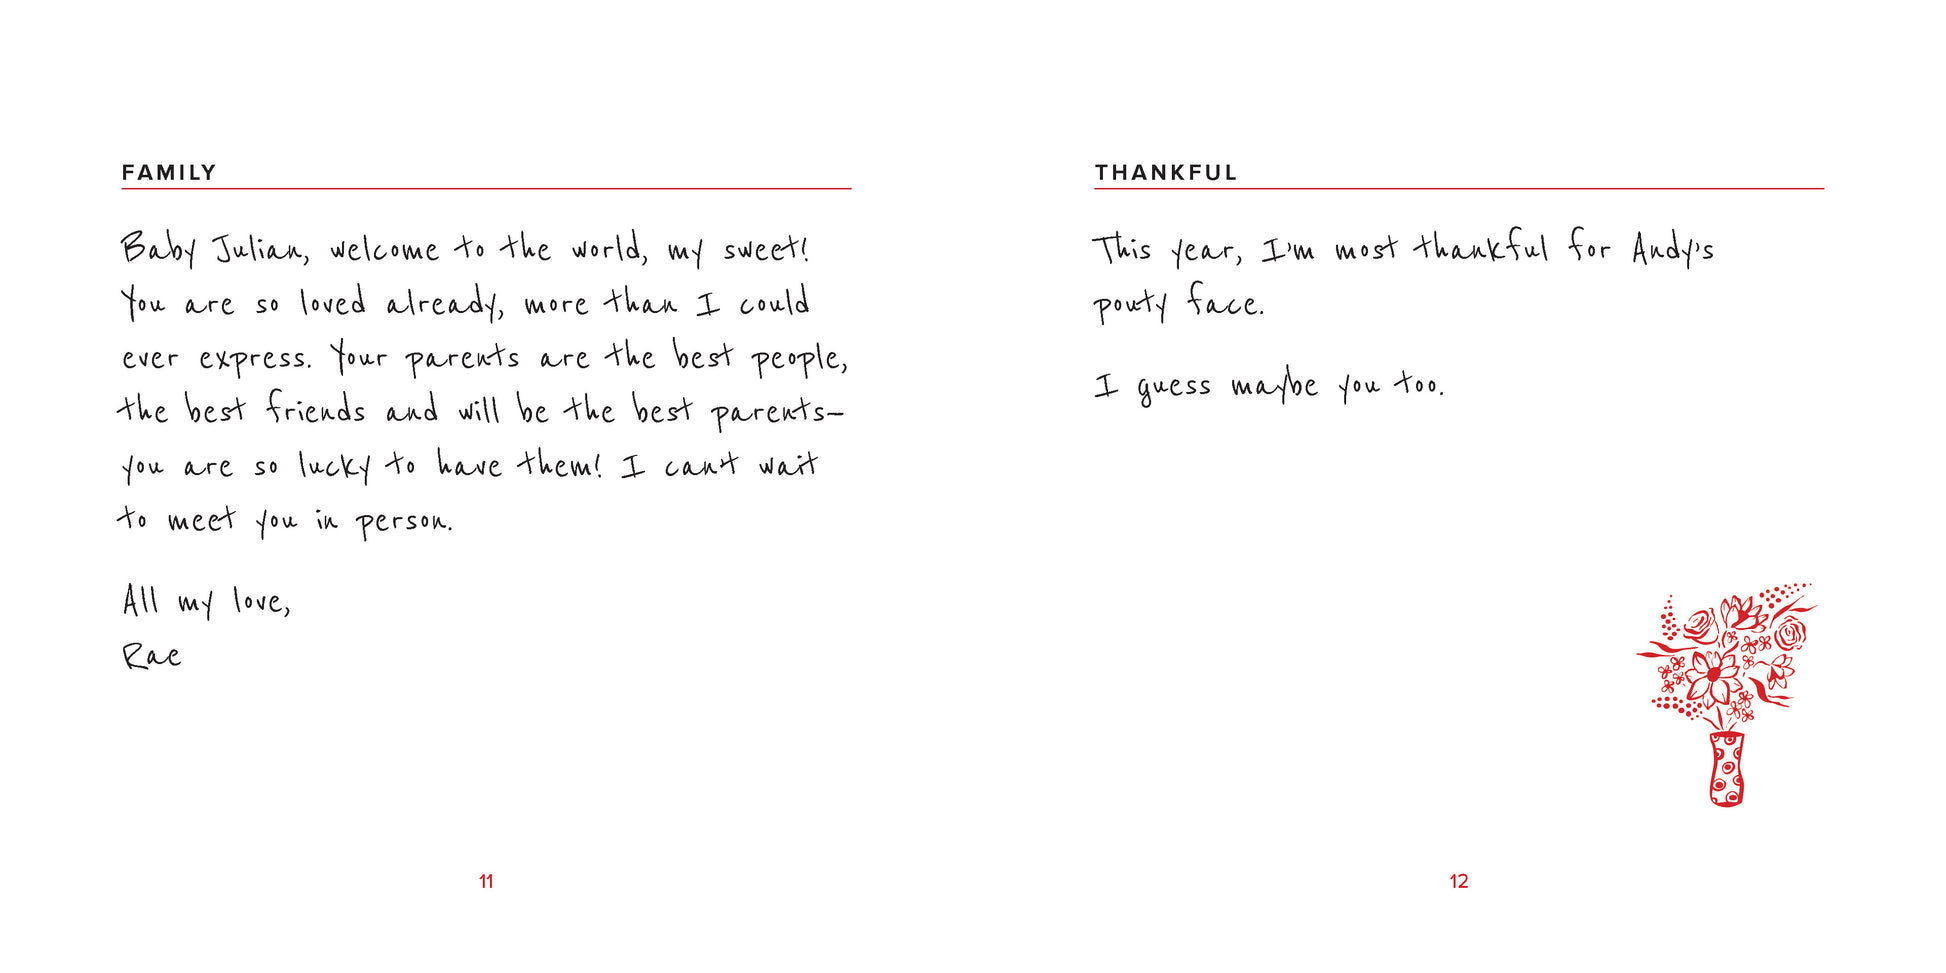 FAMILY
Baby Julian, welcome to the world, my sweet!
You are so loved already, more than I could
ever express. Your parents are the best people,
the best friends and will be the best parents—
you are so lucky to have them! I can't wait
to meet you in person.
All my love,
Rae
11
THANKFUL
This year, I'm most thankful for Andy's
pouty face.
I guess maybe you too.
12